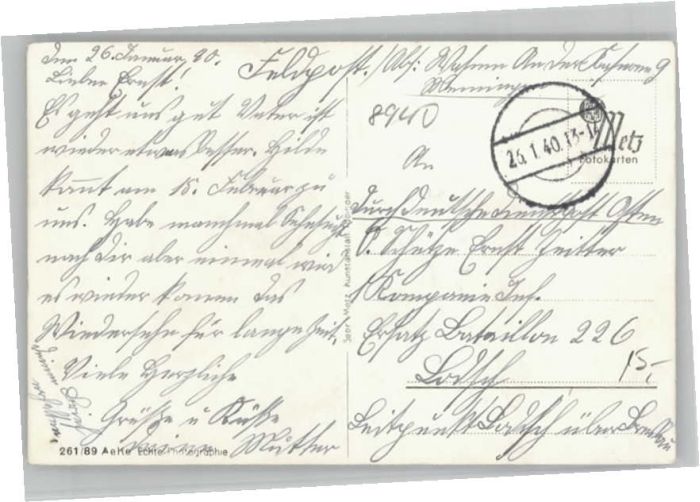 Den 26. Januar 40.
Lieber Ernst!
Es geht uns gut Vater ist
wieder etwas besser. Hilde
kommt am 15. Februar zu
uns. Habe manchmal Sehnsucht
nach dir aber einmal wird
es wieder kommen das
Wiedersehn für lange Zeit.
Viele Herzliche
Grüße u Küße
deine Mutter
Feldpost. Abs:
An der Kaserne 9
8940
An
26.1.40.13-
Metz
Fotokarten
durch deutsche Dienstpost Osten
S. Schütze Ernst
Kompanie Inf.
Ersatz Bataillon 226
Lodsch
15,-
Leitpunkt Lodsch über
Gebr. Metz Kunstanstalt
261/89 AeHe Echte Photographie